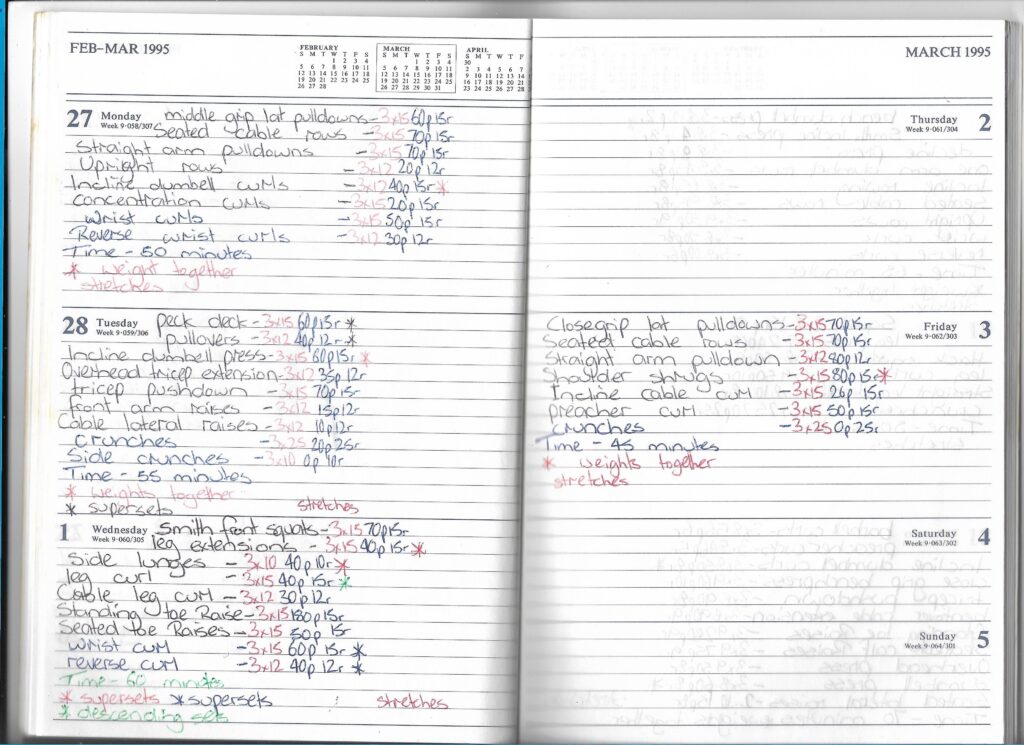 FEB–MAR 1995
FEBRUARY
S M T W T F S
1 2 3 4
5 6 7 8 9 10 11
12 13 14 15 16 17 18
19 20 21 22 23 24 25
26 27 28
MARCH
S M T W T F S
1 2 3 4
5 6 7 8 9 10 11
12 13 14 15 16 17 18
19 20 21 22 23 24 25
26 27 28 29 30 31
APRIL
S M T W T F S
30
2 3 4 5 6 7 8
9 10 11 12 13 14 15
16 17 18 19 20 21 22
23 24 25 26 27 28 29
27 Monday
Week 9·058/307
middle grip lat pulldowns-3x15 60p 15r
Seated cable rows -3x15 70p 15r
Straight arm pulldowns -3x15 70p 15r
Upright rows -3x12 20p 12r
Incline dumbell curls -3x12 40p 15r *
concentration curls -3x15 20p 15r
wrist curls -3x15 50p 15r
Reverse wrist curls -3x12 30p 12r
Time - 50 minutes
* weight together
stretches
28 Tuesday
Week 9·059/306
peck deck -3x15 60p 15r *
pullovers -3x12 40p 12r *
Incline dumbell press-3x15 60p 15r *
Overhead tricep extension-3x12 35p 12r
tricep pushdown -3x15 70p 15r
front arm raises -3x12 15p 12r
Cable lateral raises -3x12 10p 12r
crunches -3x25 20p 25r
Side crunches -3x10 0p 10r
Time - 55 minutes
* weights together
* supersets stretches
1 Wednesday
Week 9·060/305
Smith front squats-3x15 70p 15r
leg extensions -3x15 40p 15r *
Side lunges -3x10 40p 10r *
leg curl -3x15 40p 15r *
Cable leg curl -3x12 30p 12r
Standing toe Raise-3x15 180p 15r
Seated toe Raises -3x15 50p 15r
wrist curl -3x15 60p 15r *
reverse curl -3x12 40p 12r *
Time - 60 minutes
* supersets * supersets stretches
* descending sets
MARCH 1995
Thursday 2
Week 9·061/304
Friday 3
Week 9·062/303
Closegrip lat pulldowns-3x15 70p 15r
Seated cable rows -3x15 70p 15r
Straight arm pulldown -3x12 80p 12r
Shoulder shrugs -3x15 80p 15r *
Incline cable curl -3x15 26p 15r
preacher curl -3x15 50p 15r
crunches -3x25 0p 25r
Time - 45 minutes
* weights together
stretches
Saturday 4
Week 9·063/302
Sunday 5
Week 9·064/301